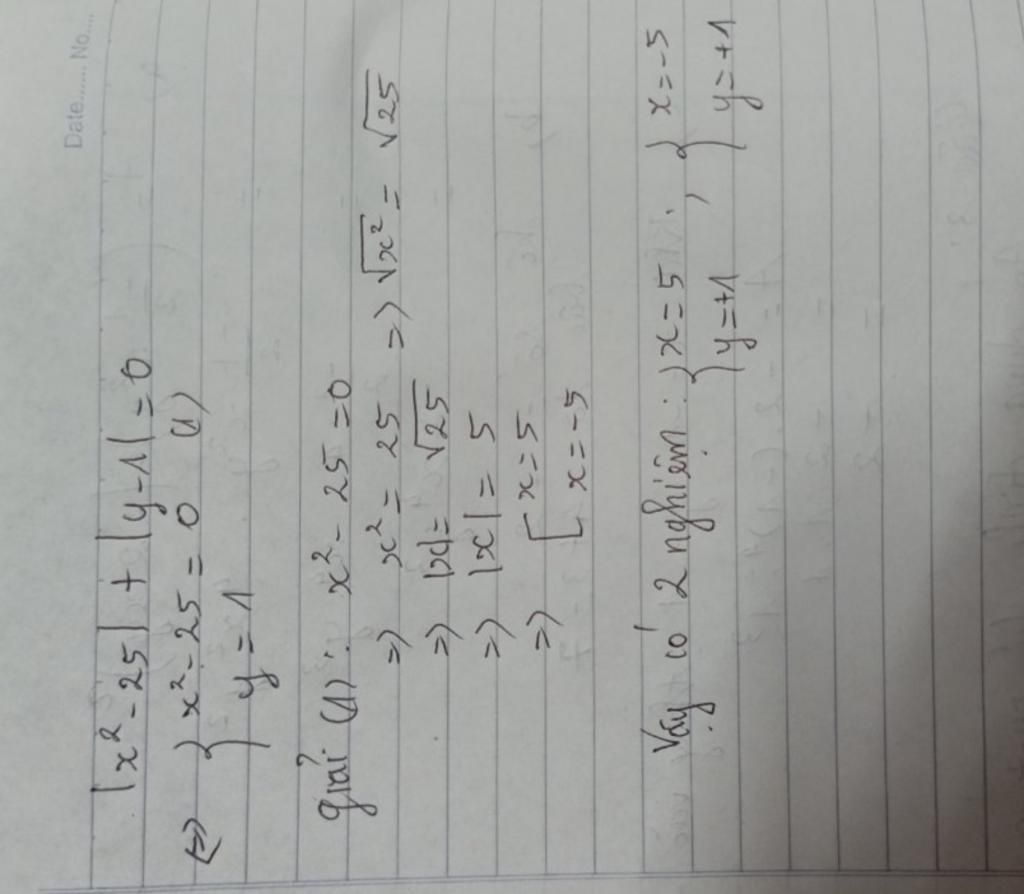 Date........ No....
|x² - 25| + |y - 1| = 0
<=> { x² - 25 = 0 (1)
y = 1
giải (1): x² - 25 = 0
=> x² = 25 => √x² = √25
=> |x| = √25
=> |x| = 5
=> [ x = 5
x = -5
Vậy có 2 nghiệm: { x = 5 , { x = -5
y = +1 y = +1